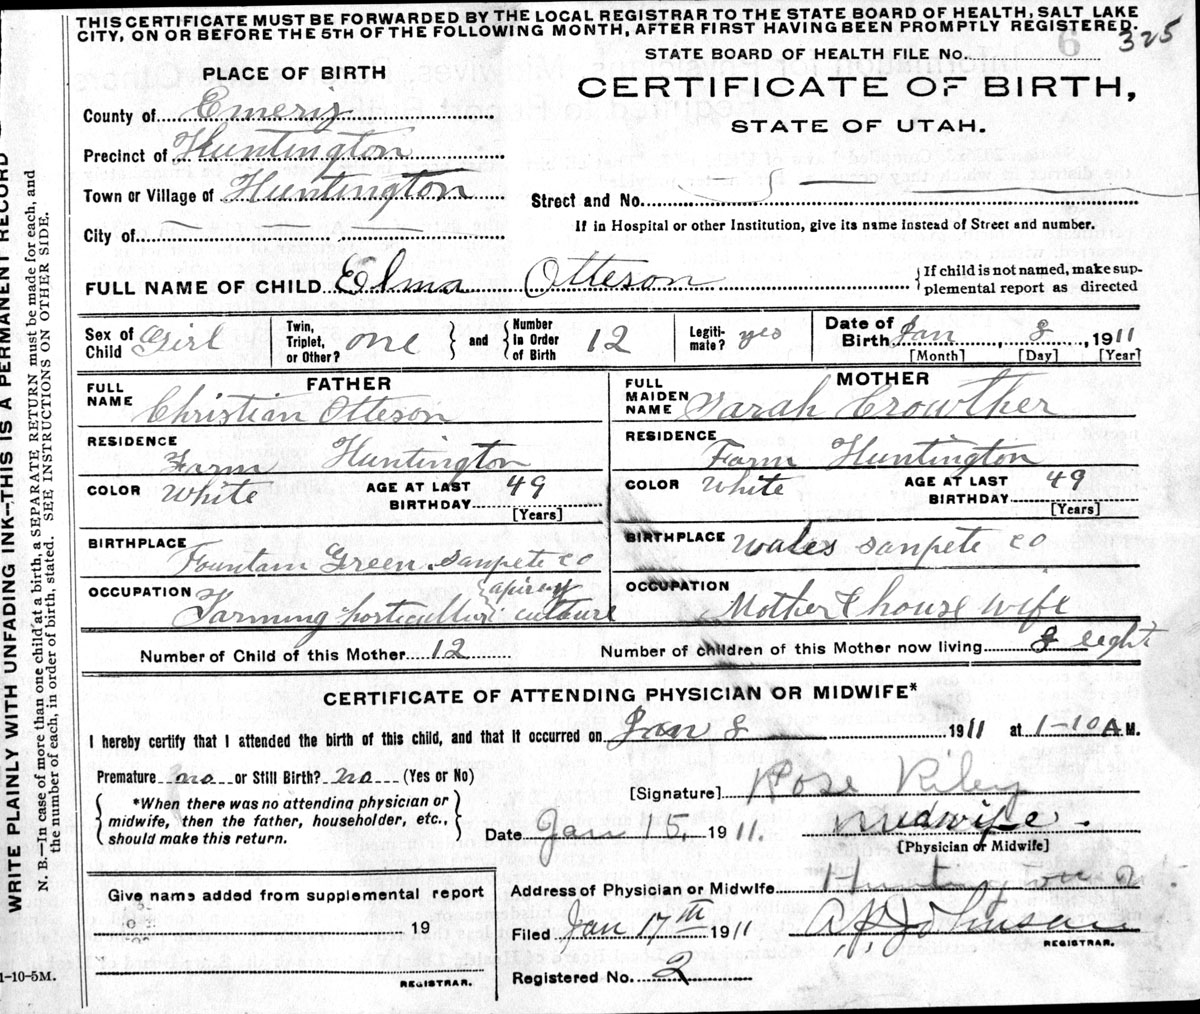 THIS CERTIFICATE MUST BE FORWARDED BY THE LOCAL REGISTRAR TO THE STATE BOARD OF HEALTH, SALT LAKE
CITY, ON OR BEFORE THE 5TH OF THE FOLLOWING MONTH, AFTER FIRST HAVING BEEN PROMPTLY REGISTERED.
325
STATE BOARD OF HEALTH FILE No.
PLACE OF BIRTH
CERTIFICATE OF BIRTH,
STATE OF UTAH.
County of Emeriz
Precinct of Huntington
Town or Village of Huntington
Street and No.
If in Hospital or other Institution, give its name instead of Street and number.
City of
FULL NAME OF CHILD Elma Otteson
If child is not named, make sup-
plemental report as directed
Sex of Child Girl
Twin, Triplet, or Other? one
and
Number In Order of Birth 12
Legiti-mate? yes
Date of Birth Jan 8, 1911
[Month] [Day] [Year]
FATHER
FULL NAME Christian Otteson
RESIDENCE Farm Huntington
COLOR White AGE AT LAST BIRTHDAY 49
[Years]
BIRTHPLACE Fountain Green Sanpete co
OCCUPATION Farming horticultur apirary culture
MOTHER
FULL MAIDEN NAME Sarah Crowther
RESIDENCE Farm Huntington
COLOR White AGE AT LAST BIRTHDAY 49
[Years]
BIRTHPLACE Wales Sanpete co
OCCUPATION Mother & house wife
Number of Child of this Mother 12 Number of children of this Mother now living 8 eight
CERTIFICATE OF ATTENDING PHYSICIAN OR MIDWIFE*
I hereby certify that I attended the birth of this child, and that it occurred on Jan 8 1911 at 1-10 A M.
Premature no or Still Birth? no (Yes or No)
*When there was no attending physician or
midwife, then the father, householder, etc.,
should make this return.
[Signature] Rose Riley
Date Jan 15, 1911. Midwife.
[Physician or Midwife]
Give name added from supplemental report
19
REGISTRAR.
Address of Physician or Midwife Huntington
Filed Jan 17th 1911 Johnson
REGISTRAR.
Registered No. 2
1-10-5M.
WRITE PLAINLY WITH UNFADING INK--THIS IS A PERMANENT RECORD
N. B.--In case of more than one child at a birth, a SEPARATE RETURN must be made for each, and
the number of each, in order of birth, stated. SEE INSTRUCTIONS ON OTHER SIDE.